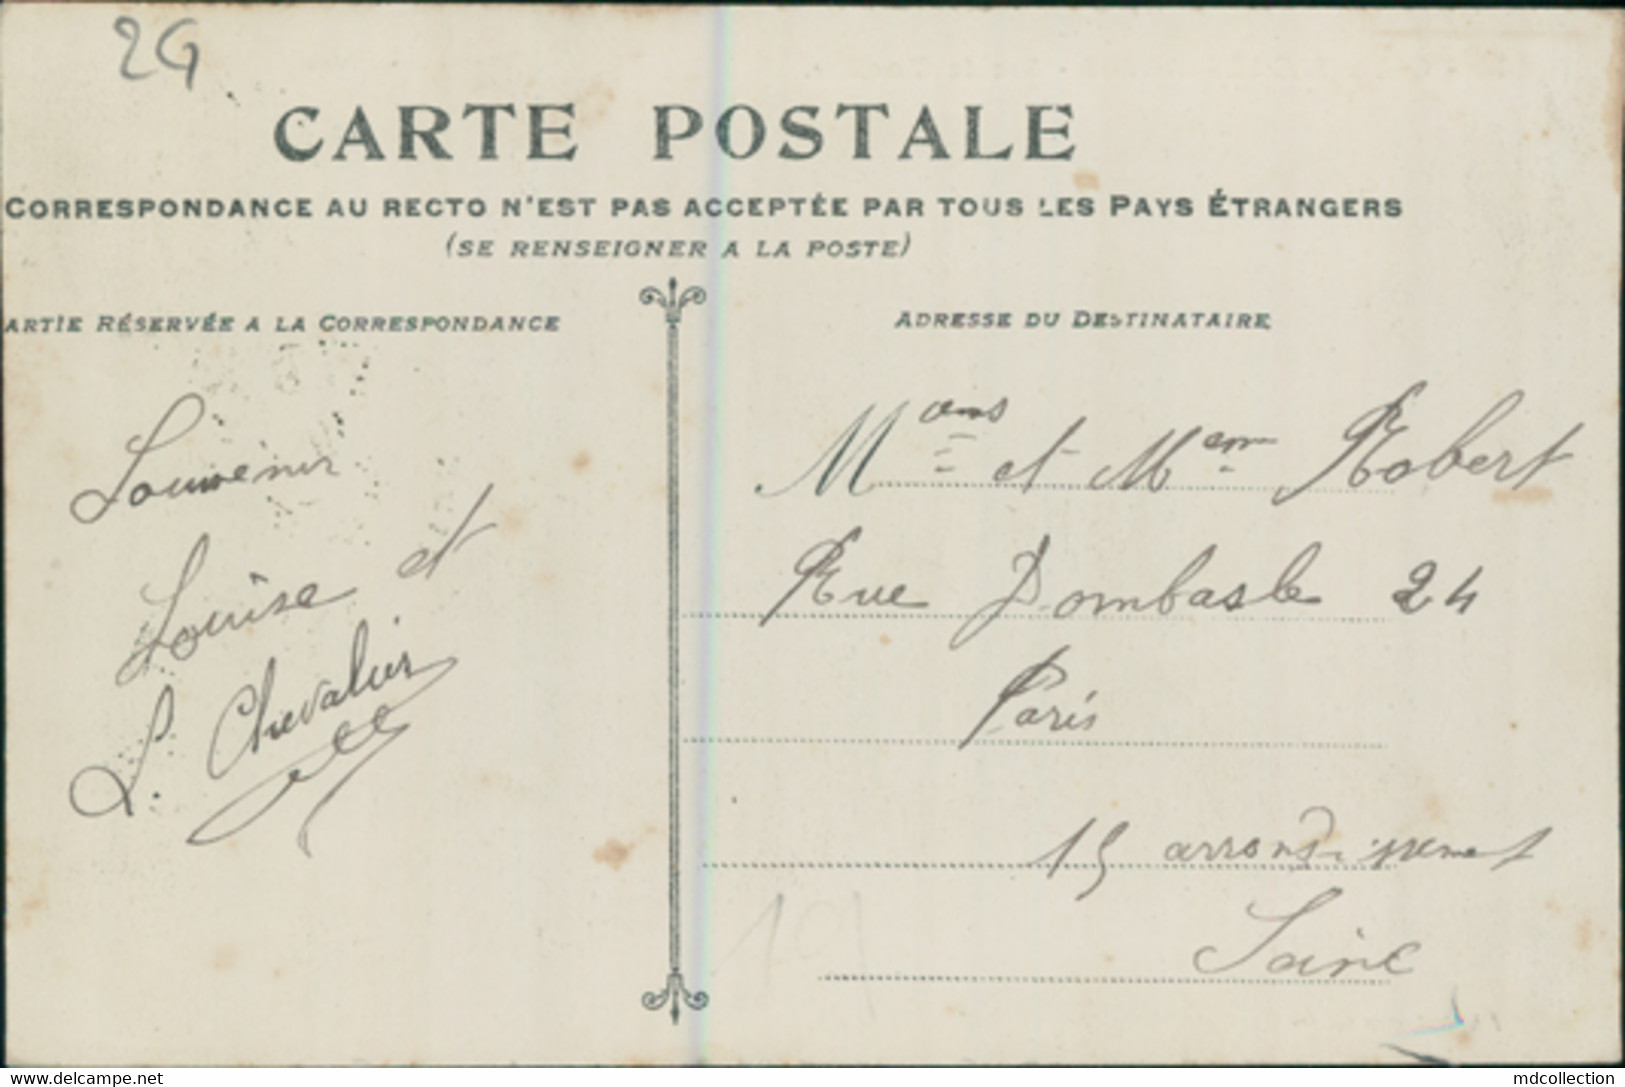 2G
CARTE POSTALE
CORRESPONDANCE AU RECTO N'EST PAS ACCEPTÉE PAR TOUS LES PAYS ÉTRANGERS
(SE RENSEIGNER A LA POSTE)
ARTIE RÉSERVÉE A LA CORRESPONDANCE
Souvenir
Louise et
L. Chevalier
ADRESSE DU DESTINATAIRE
et Mem Robert
Rue Dombasle 24
Paris
15 arrondissement
Seine
www.delcampe.net
mdcollection